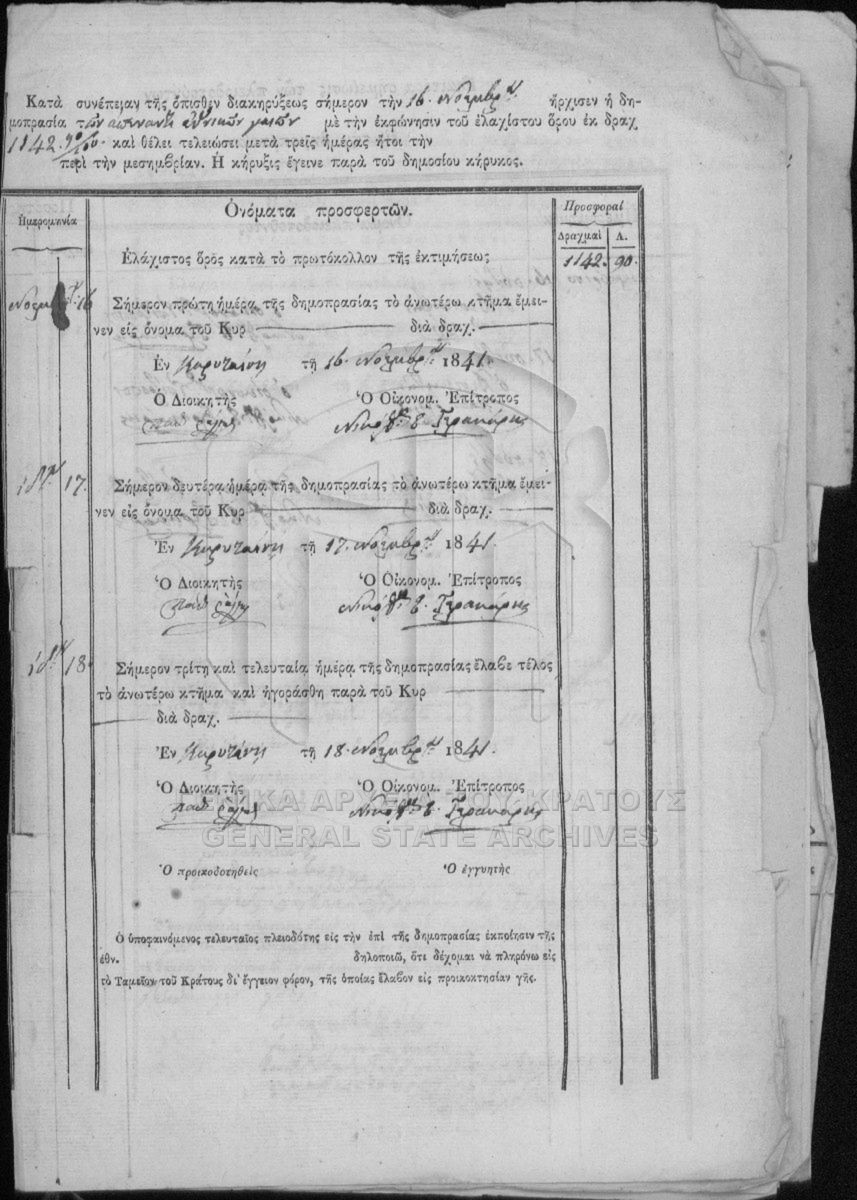 Κατὰ συνέπειαν τῆς ὄπισθεν διακηρύξεως σήμερον τὴν 16. Νοεμβρ. ἤρχισεν ἡ δη-
μοπρασία τῶν ἀπέναντι ἐθνικῶν γαιῶν μὲ τὴν ἐκφώνησιν τοῦ ἐλαχίστου ὅρου ἐκ δραχ
1142. 90/00. καὶ θέλει τελειώσει μετὰ τρεῖς ἡμέρας ἤτοι τὴν
περὶ τὴν μεσημβρίαν. Ἡ κήρυξις ἔγεινε παρὰ τοῦ δημοσίου κήρυκος.
Ἡμερομηνία
Ὀνόματα προσφερτῶν.
Προσφοραὶ
Δραχμαὶ Λ.
Ἐλάχιστος ὅρὸς κατὰ τὸ πρωτόκολλον τῆς ἐκτιμήσεως 1142. 90.
Νοεμβ. 16 Σήμερον πρώτη ἡμέρα τῆς δημοπρασίας τὸ ἀνωτέρω κτῆμα ἔμει-
νεν εἰς ὄνομα τοῦ Κυρ διὰ δραχ.
Ἐν Καρυταίνῃ τῇ 16. Νοεμβρ. 1841.
Ὁ Διοικητὴς Ὁ Οἰκονομ. Ἐπίτροπος
Γερακάρης
17. Σήμερον δευτέρα ἡμέρα τῆς δημοπρασίας τὸ ἀνωτέρω κτῆμα ἔμει-
νεν εἰς ὄνομα τοῦ Κυρ διὰ δραχ.
Ἐν Καρυταίνῃ τῇ 17. Νοεμβρ. 1841.
Ὁ Διοικητὴς Ὁ Οἰκονομ. Ἐπίτροπος
Γερακάρης
18. Σήμερον τρίτη καὶ τελευταία ἡμέρα τῆς δημοπρασίας ἔλαβε τέλος
τὸ ἀνωτέρω κτῆμα καὶ ἠγοράσθη παρὰ τοῦ Κυρ
διὰ δραχ.
Ἐν Καρυταίνῃ τῇ 18. Νοεμβρ. 1841.
Ὁ Διοικητὴς Ὁ Οἰκονομ. Ἐπίτροπος
Γερακάρης
ΓΕΝΙΚΑ ΑΡΧΕΙΑ ΤΟΥ ΚΡΑΤΟΥΣ
GENERAL STATE ARCHIVES
Ὁ προικοδοτηθεὶς Ὁ ἐγγυητὴς
Ὁ ὑποφαινόμενος τελευταῖος πλειοδότης εἰς τὴν ἐπὶ τῆς δημοπρασίας ἐκποίησιν τῆς
ἐθν. δηλοποιῶ, ὅτι δέχομαι νὰ πληρόνω εἰς
τὸ Ταμεῖον τοῦ Κράτους δι' ἔγγειον φόρον, τῆς ὁποίας ἔλαβον εἰς προικοκτησίαν γῆς.